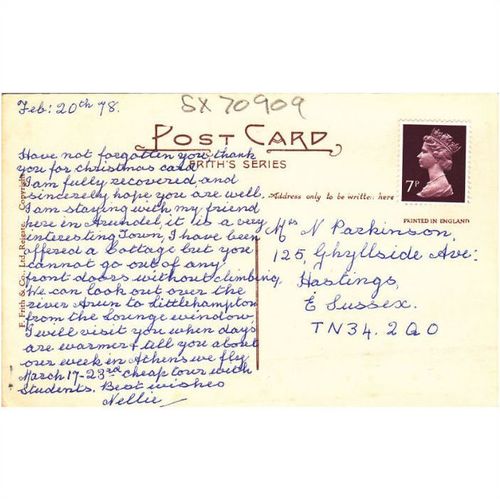 Feb: 20th 78.
SX 70909
POST CARD
FRITH'S SERIES
Have not forgotten you, thank
you for christmas card
I am fully recovered, and
sincerely hope you are well,
I am staying with my friend
here in Arundel, it is a very
interesting Town, I have been
offered a Cottage but you
cannot go out of any
front doors without climbing
We can look out over the
river Arun to Littlehampton
from the Lounge window
I will visit you when days
are warmer & tell you about
our week in Athens we fly
March 17-23rd cheap tour with
Students. Best wishes
Nellie
Address only to be written here
7P
PRINTED IN ENGLAND
Mrs N Parkinson,
125, Ghyllside Ave:
Hastings,
E Sussex.
TN34. 2QO
F. Frith & Co., Ltd, Reigate. Copyright.